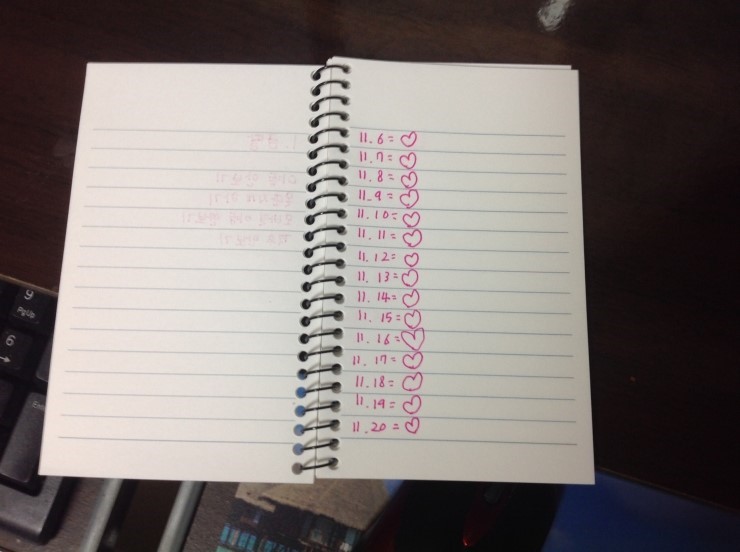 11.6=♡
11.7=♡
11.8=♡
11.9=♡
11.10=♡
11.11=♡
11.12=♡
11.13=♡
11.14=♡
11.15=♡
11.16=♡
11.17=♡
11.18=♡
11.19=♡
11.20=♡
9
PgUp
6